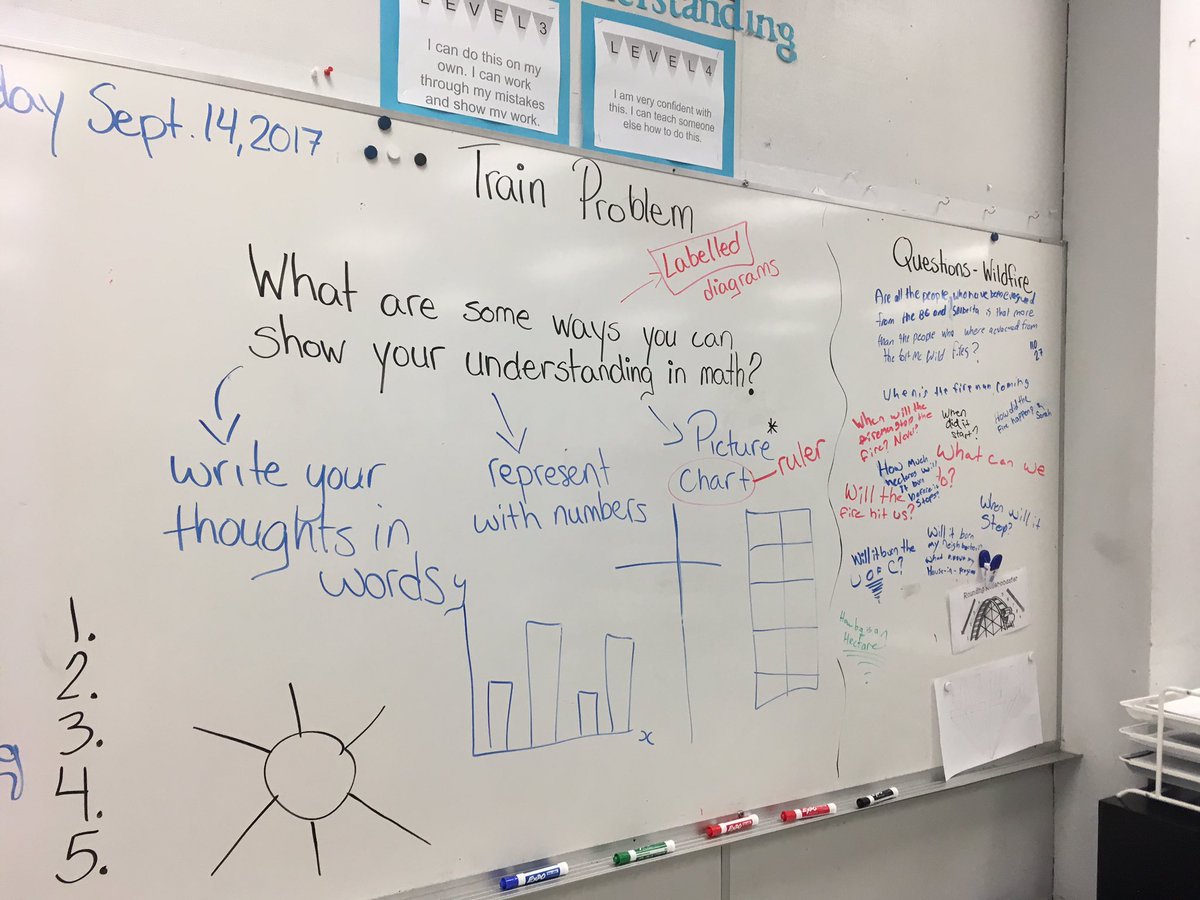 erstanding
LEVEL 3
I can do this on my
own. I can work
through my mistakes
and show my work.
LEVEL 4
I am very confident with
this. I can teach someone
else how to do this.
day Sept. 14, 2017
Train Problem
Labelled
diagrams
What are some ways you can
show your understanding in math?
write your
thoughts in
words
represent
with numbers
Picture*
Chart
ruler
y
x
1.
2.
3.
4.
5.
Questions - Wildfire
Are all the people who have been
from the BC and is that more
than the people who where from
the fort Mc Wild fires?
When is the fire man coming
When will the
firemen stop the
fire? Never?
When
did it
start?
How did the
fire happen?
Sarah
How Much
hectares will
it burn
before it
stops?
What can we
do?
Will the
fire hit us?
When will it
Stop?
Will it burn the
U OF C?
Will it born
my neighbor
What
How big is an
Hectare
Rounding Rollercoaster
EXPO
EXPO
EXPO
EXPO
EXPO